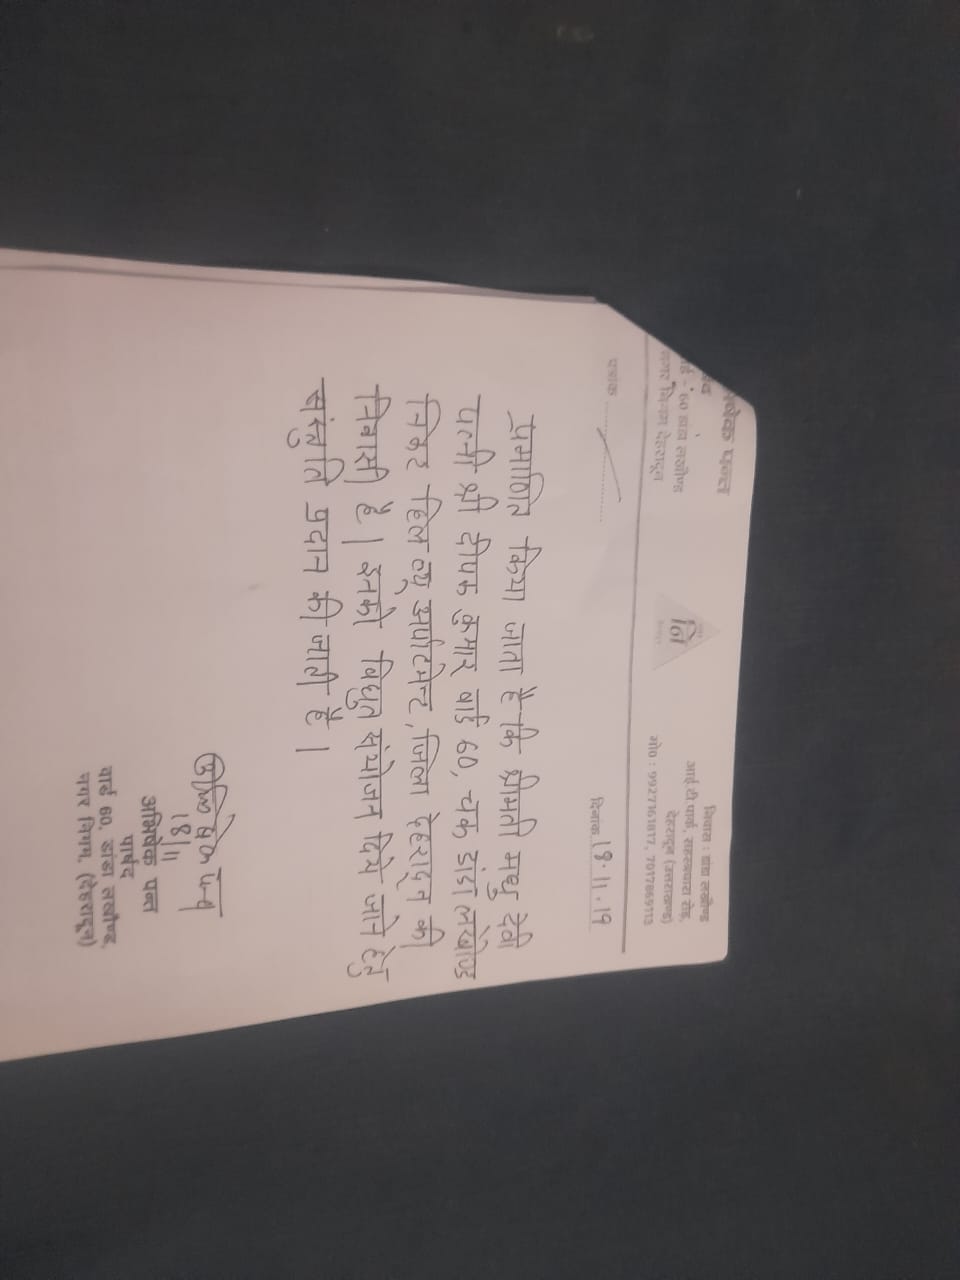 षेक पन्त
वार्ड - 60 डांडा लखौण्ड
नगर निगम देहरादून
नि
निवास : डांडा लखौण्ड
आई.टी.पार्क, सहस्त्रधारा रोड़,
देहरादून (उत्तराखण्ड)
मो० : 9927161817, 7017869113
पत्रांक ..................
दिनांक 18.11.19
प्रमाणित किया जाता है कि श्रीमती मधु देवी
पत्नी श्री दीपक कुमार वार्ड 60, चक डांडा लखौण्ड
निकट हिल व्यू अर्पाटमेन्ट, जिला देहरादून की
निवासी है। इनको विधुत संयोजन दिये जाने हेतु
संस्तुति प्रदान की जाती है।
18/11
अभिषेक पन्त
पार्षद
वार्ड 60, डांडा लखौण्ड,
नगर निगम, (देहरादून)